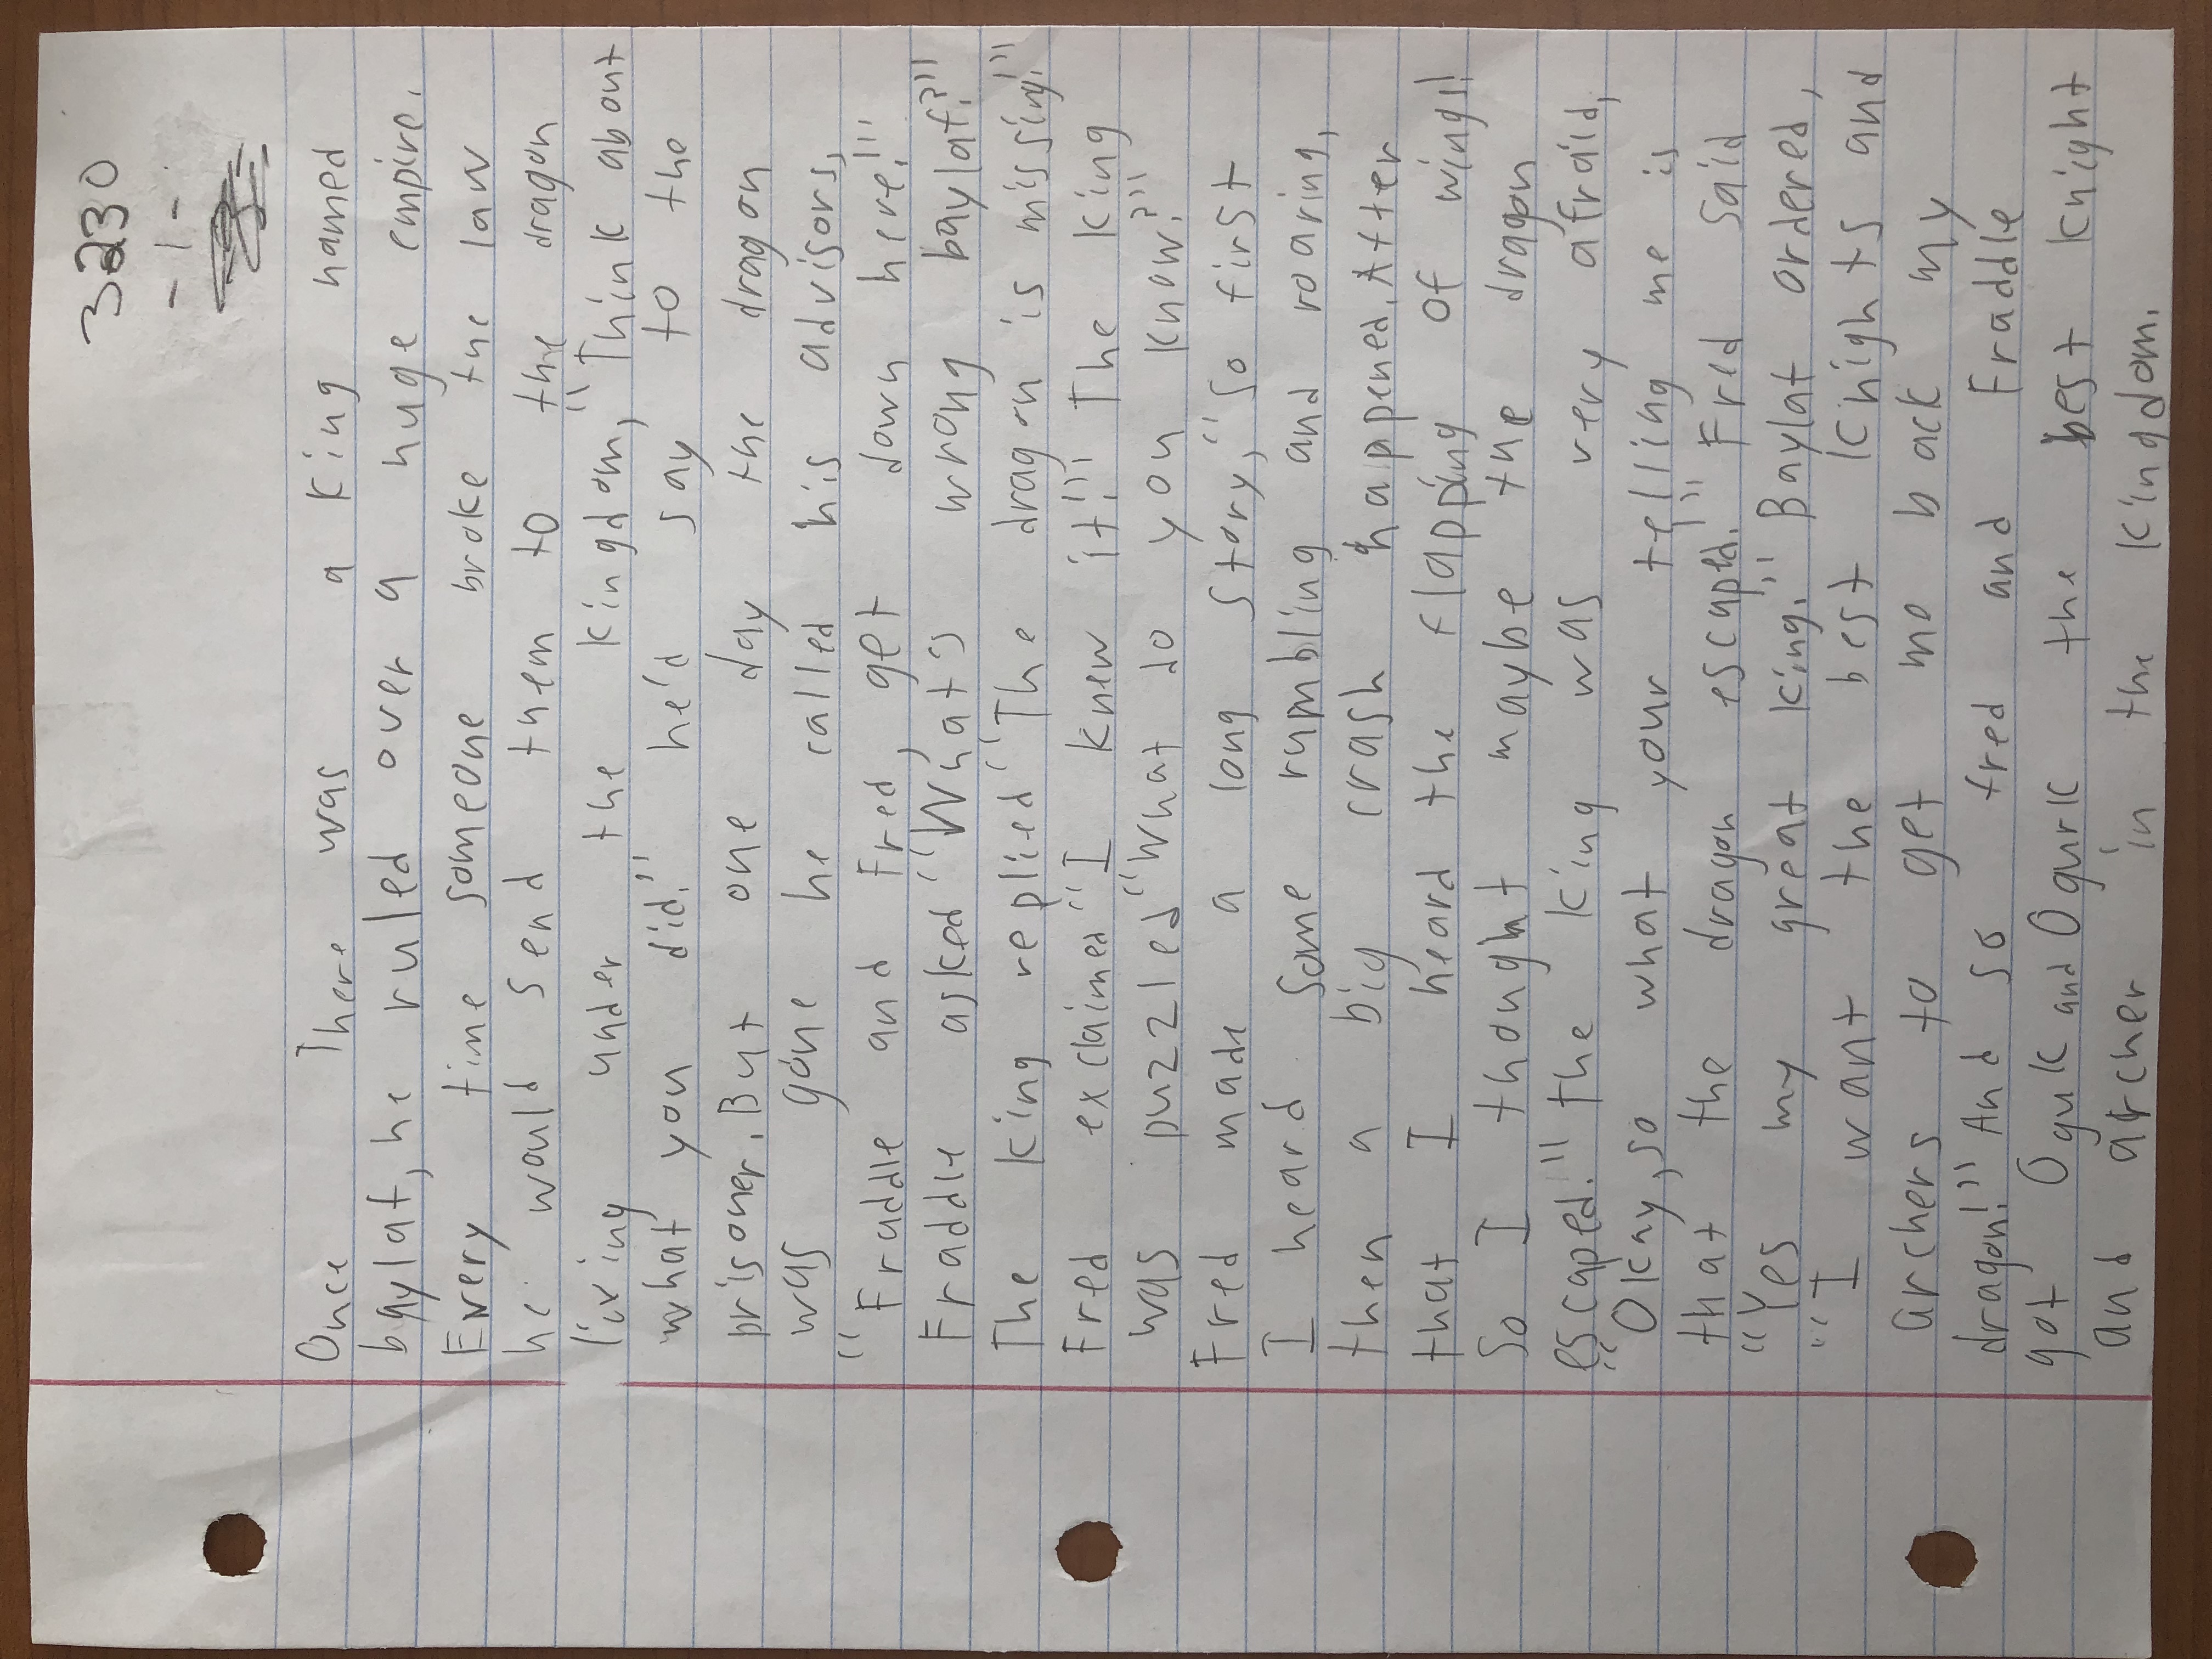 3230
- 1 -
Once There was a king named
baylat, he ruled over a huge empire.
Every time someone broke the law
he would send them to the dragon
living under the kingdom, "Think about
what you did." he'd say to the
prisoner. But one day the dragon
was gone he called his advisors,
"Fraddle and Fred, get down here!"
Fraddle asked "What's wrong baylat?"
The king replied "The dragon is missing!"
Fred exclaimed "I knew it!" The king
was puzzled "What do you know?"
Fred made a long story, "So first
I heard some rumbling and roaring,
then a big crash happened. After
that I heard the flapping of wings!
So I thought maybe the dragon
escaped." the king was very afraid,
"Okay, so what your telling me is
that the dragon escaped!" Fred said
"Yes my great king." Baylat ordered,
"I want the best knights and
archers to get me back my
dragon!" And so fred and Fraddle
got Oguk and Ogurk the best knight
and archer in the kingdom.